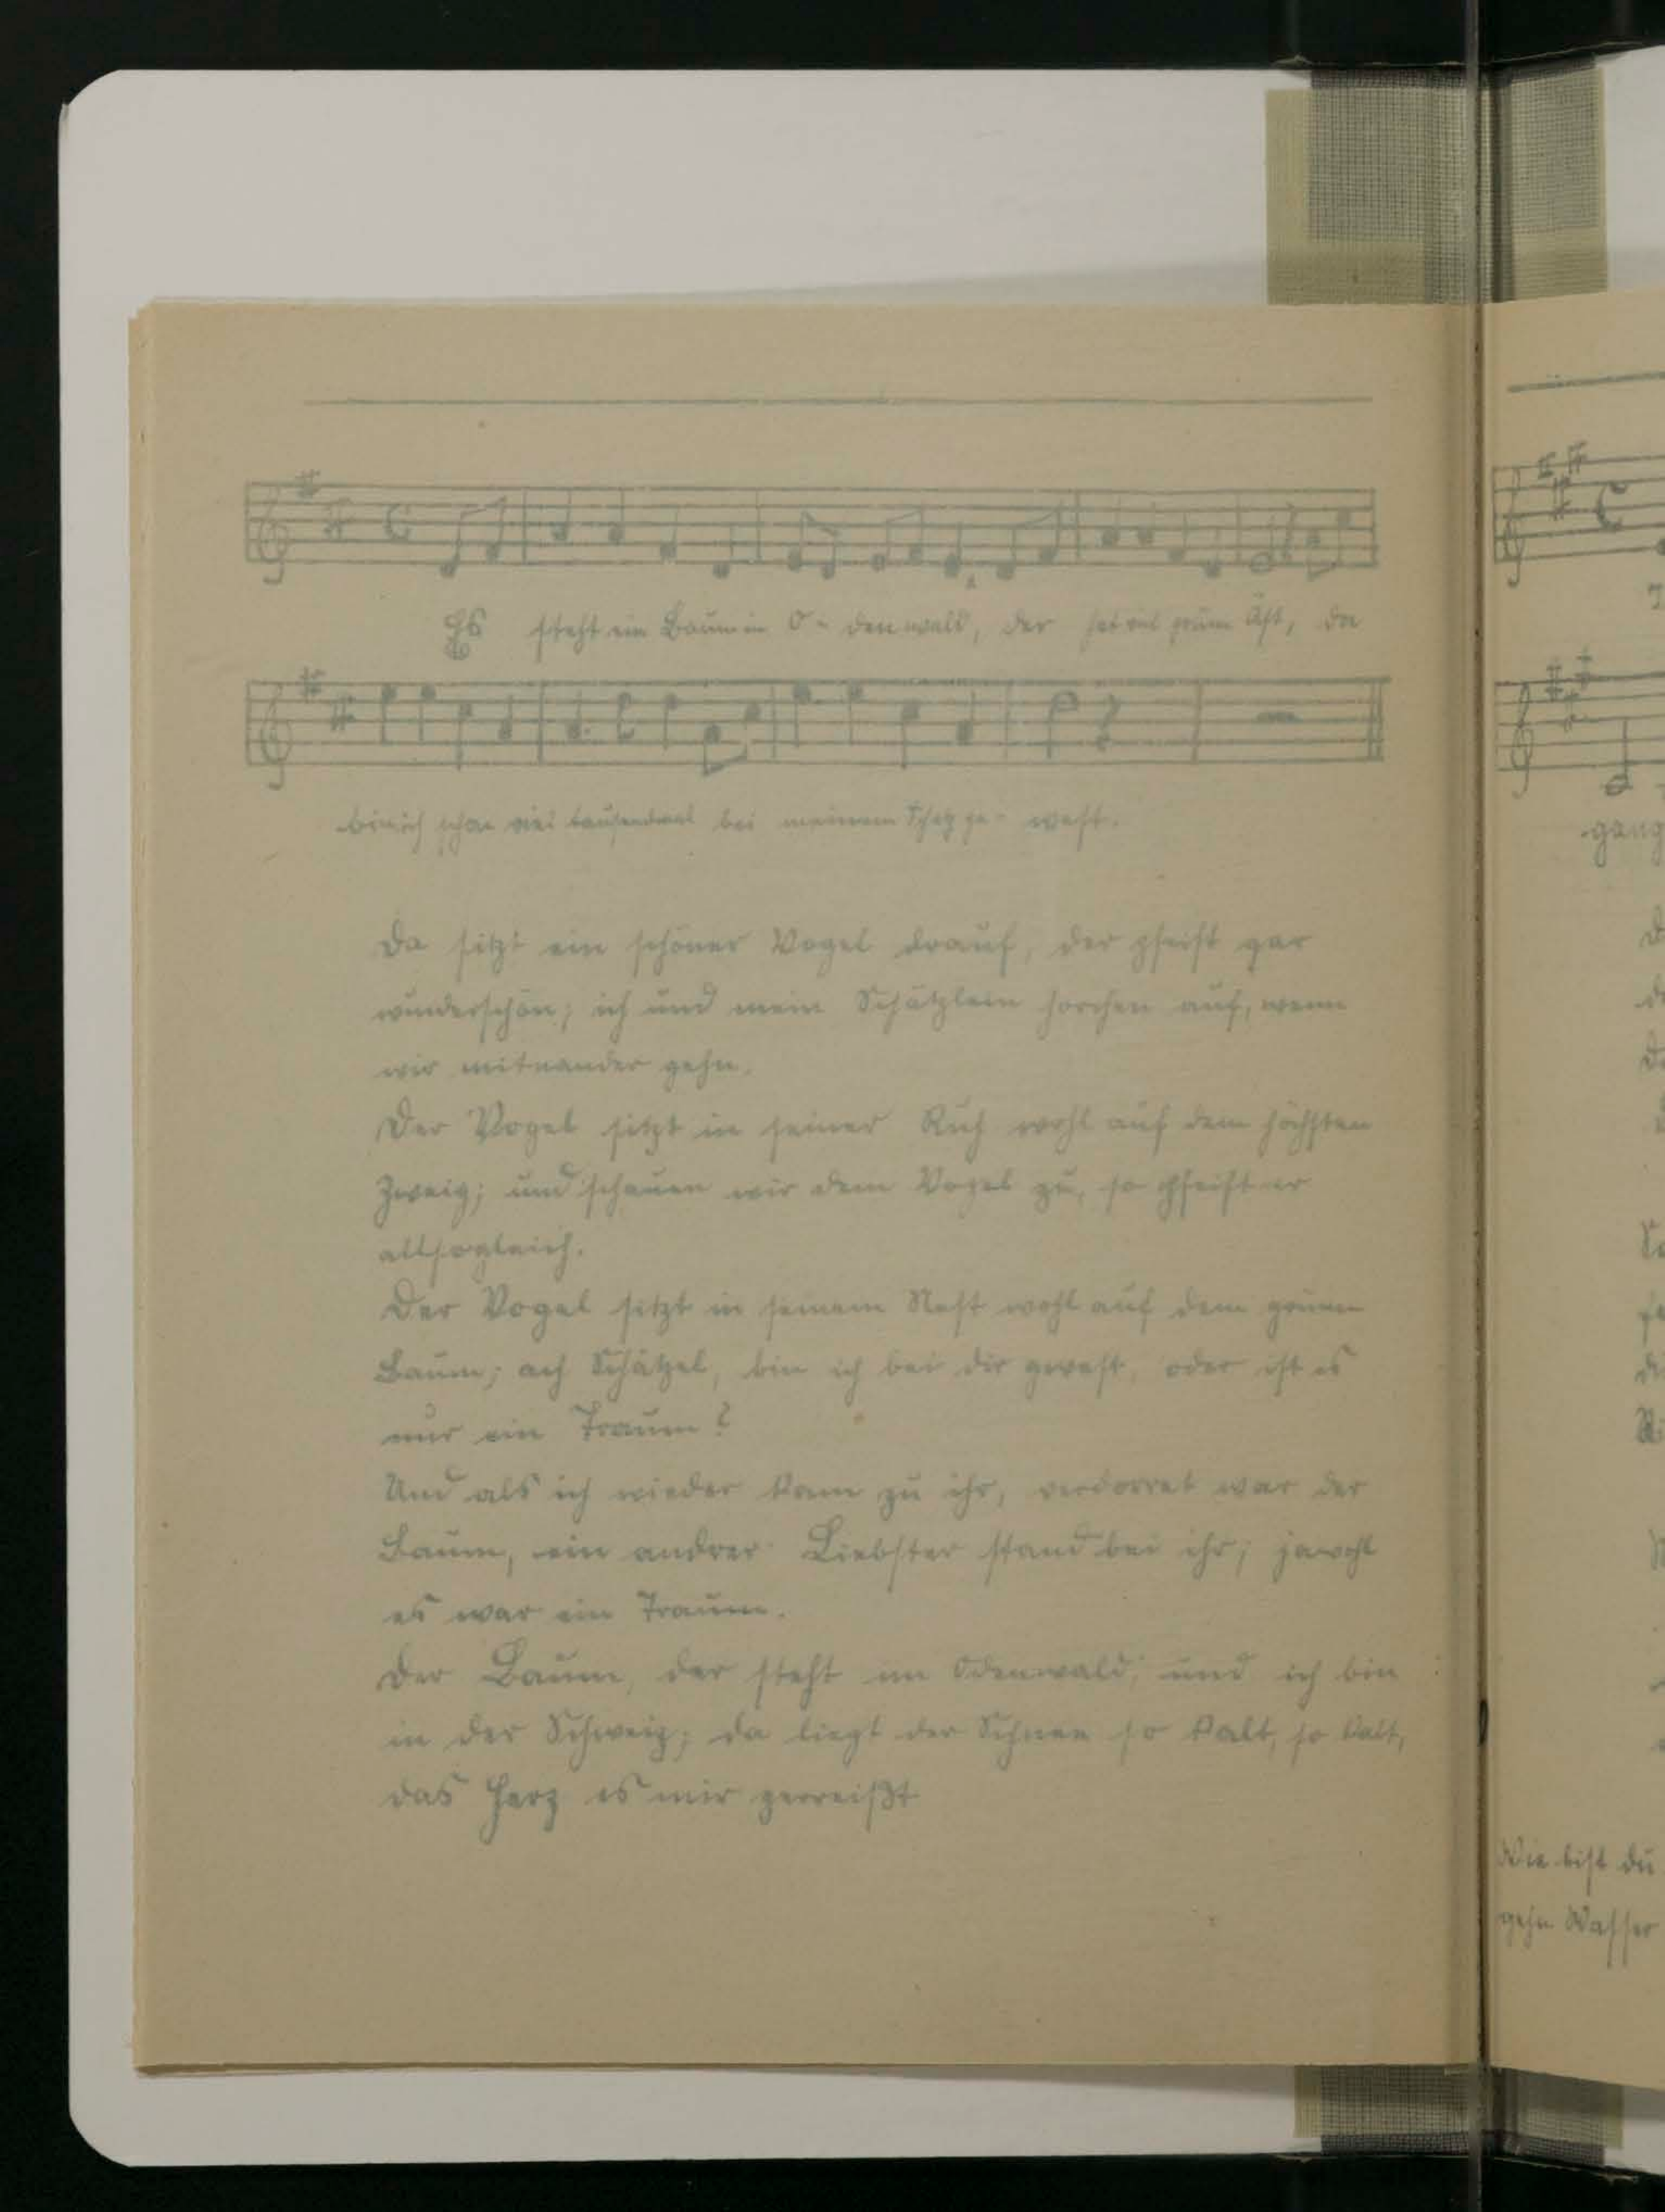 Es steht ein Baum im O - denwald, der hat viel grüne Äst, da
bin ich schon viel tausendmal bei meinem Schatz ge - west.
Da sitzt ein schöner Vogel drauf, der pfeift gar
wunderschön; ich und mein Schätzlein horchen auf, wenn
wir mitnander gehn.
Der Vogel sitzt in seiner Ruh wohl auf dem höchsten
Zweig; und schauen wir dem Vogel zu, so pfeift er
allsogleich.
Der Vogel sitzt in seinem Nest wohl auf dem grünen
Baum; ach Schätzel, bin ich bei dir gewest, oder ist es
nur ein Traum?
Und als ich wieder kam zu ihr, verdorret war der
Baum, ein andrer Liebster stand bei ihr; jawohl
es war ein Traum.
Der Baum, der steht im Odenwald, und ich bin
in der Schweiz; da liegt der Schnee so kalt, so kalt,
das Herz es mir zerreißt
gang
Wie bist du
gehn Wasser